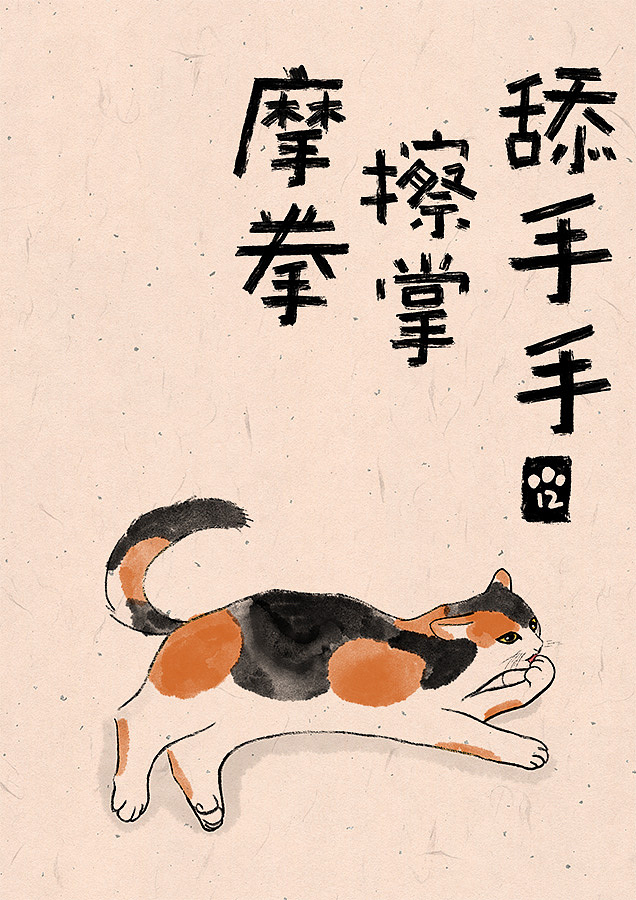 舔手手
擦掌
摩拳
12